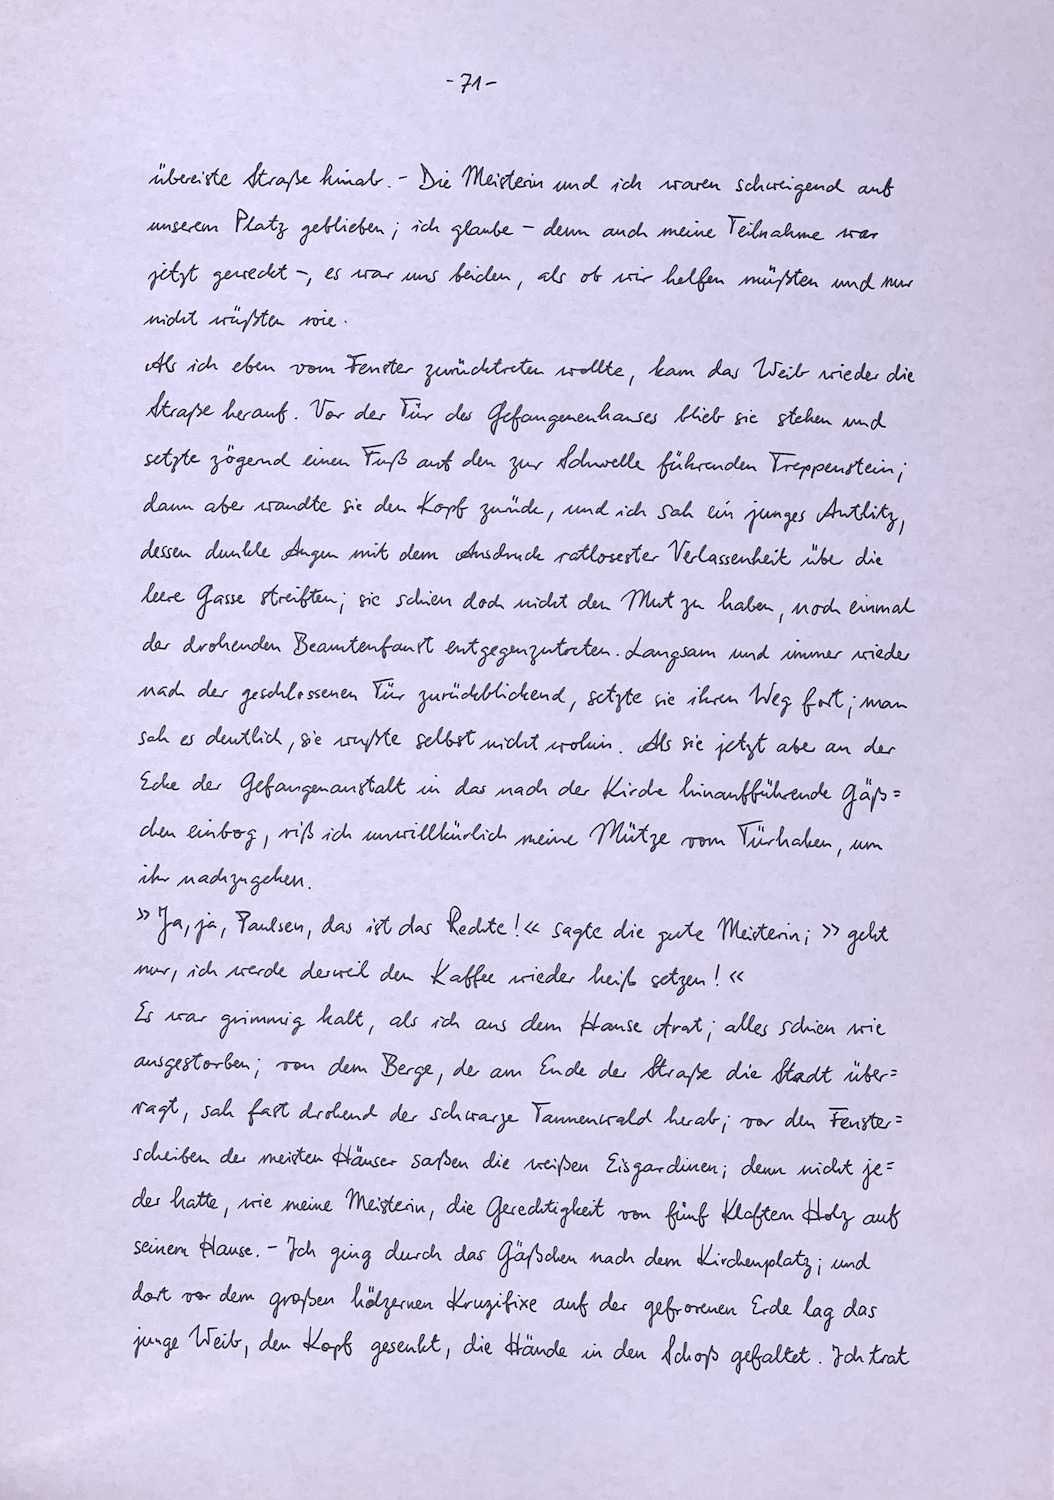 -71-
übereiste Straße hinab. - Die Meisterin und ich waren schweigend auf
unserem Platz geblieben; ich glaube - denn auch meine Teilnahme war
jetzt geweckt -, es war uns beiden, als ob wir helfen müßten und nur
nicht wüßten wie.
Als ich eben vom Fenster zurücktreten wollte, kam das Weib wieder die
Straße herauf. Vor der Tür des Gefangenenhauses blieb sie stehen und
setzte zögernd einen Fuß auf den zur Schwelle führenden Treppenstein;
dann aber wandte sie den Kopf zurück, und ich sah ein junges Antlitz,
dessen dunkle Augen mit dem Ausdruck ratlosester Verlassenheit übe die
leere Gasse streiften; sie schien doch nicht den Mut zu haben, noch einmal
der drohenden Beamtenfaust entgegenzutreten. Langsam und immer wieder
nach der geschlossenen Tür zurückblickend, setzte sie ihren Weg fort; man
sah es deutlich, sie wußte selbst nicht wohin. Als sie jetzt aber an der
Ecke der Gefangenanstalt in das nach der Kirche hinaufführende Gäß=
chen einbog, riß ich unwillkürlich meine Mütze vom Türhaken, um
ihr nachzugehen.
»Ja, ja, Paulsen, das ist das Rechte!« sagte die gute Meisterin; »geht
nur, ich werde derweil den Kaffee wieder heiß setzen!«
Es war grimmig kalt, als ich aus dem Hause trat; alles schien wie
ausgestorben; von dem Berge, der am Ende der Straße die Stadt über=
ragt, sah fast drohend der schwarze Tannenwald herab; vor den Fenster=
scheiben der meisten Häuser saßen die weißen Eisgardinen; denn nicht je=
der hatte, wie meine Meisterin, die Gerechtigkeit von fünf Klaftern Holz auf
seinem Hause. - Ich ging durch das Gäßchen nach dem Kirchenplatz; und
dort vor dem großen hölzernen Kruzifixe auf der gefrorenen Erde lag das
junge Weib, den Kopf gesenkt, die Hände in den Schoß gefaltet. Ich trat